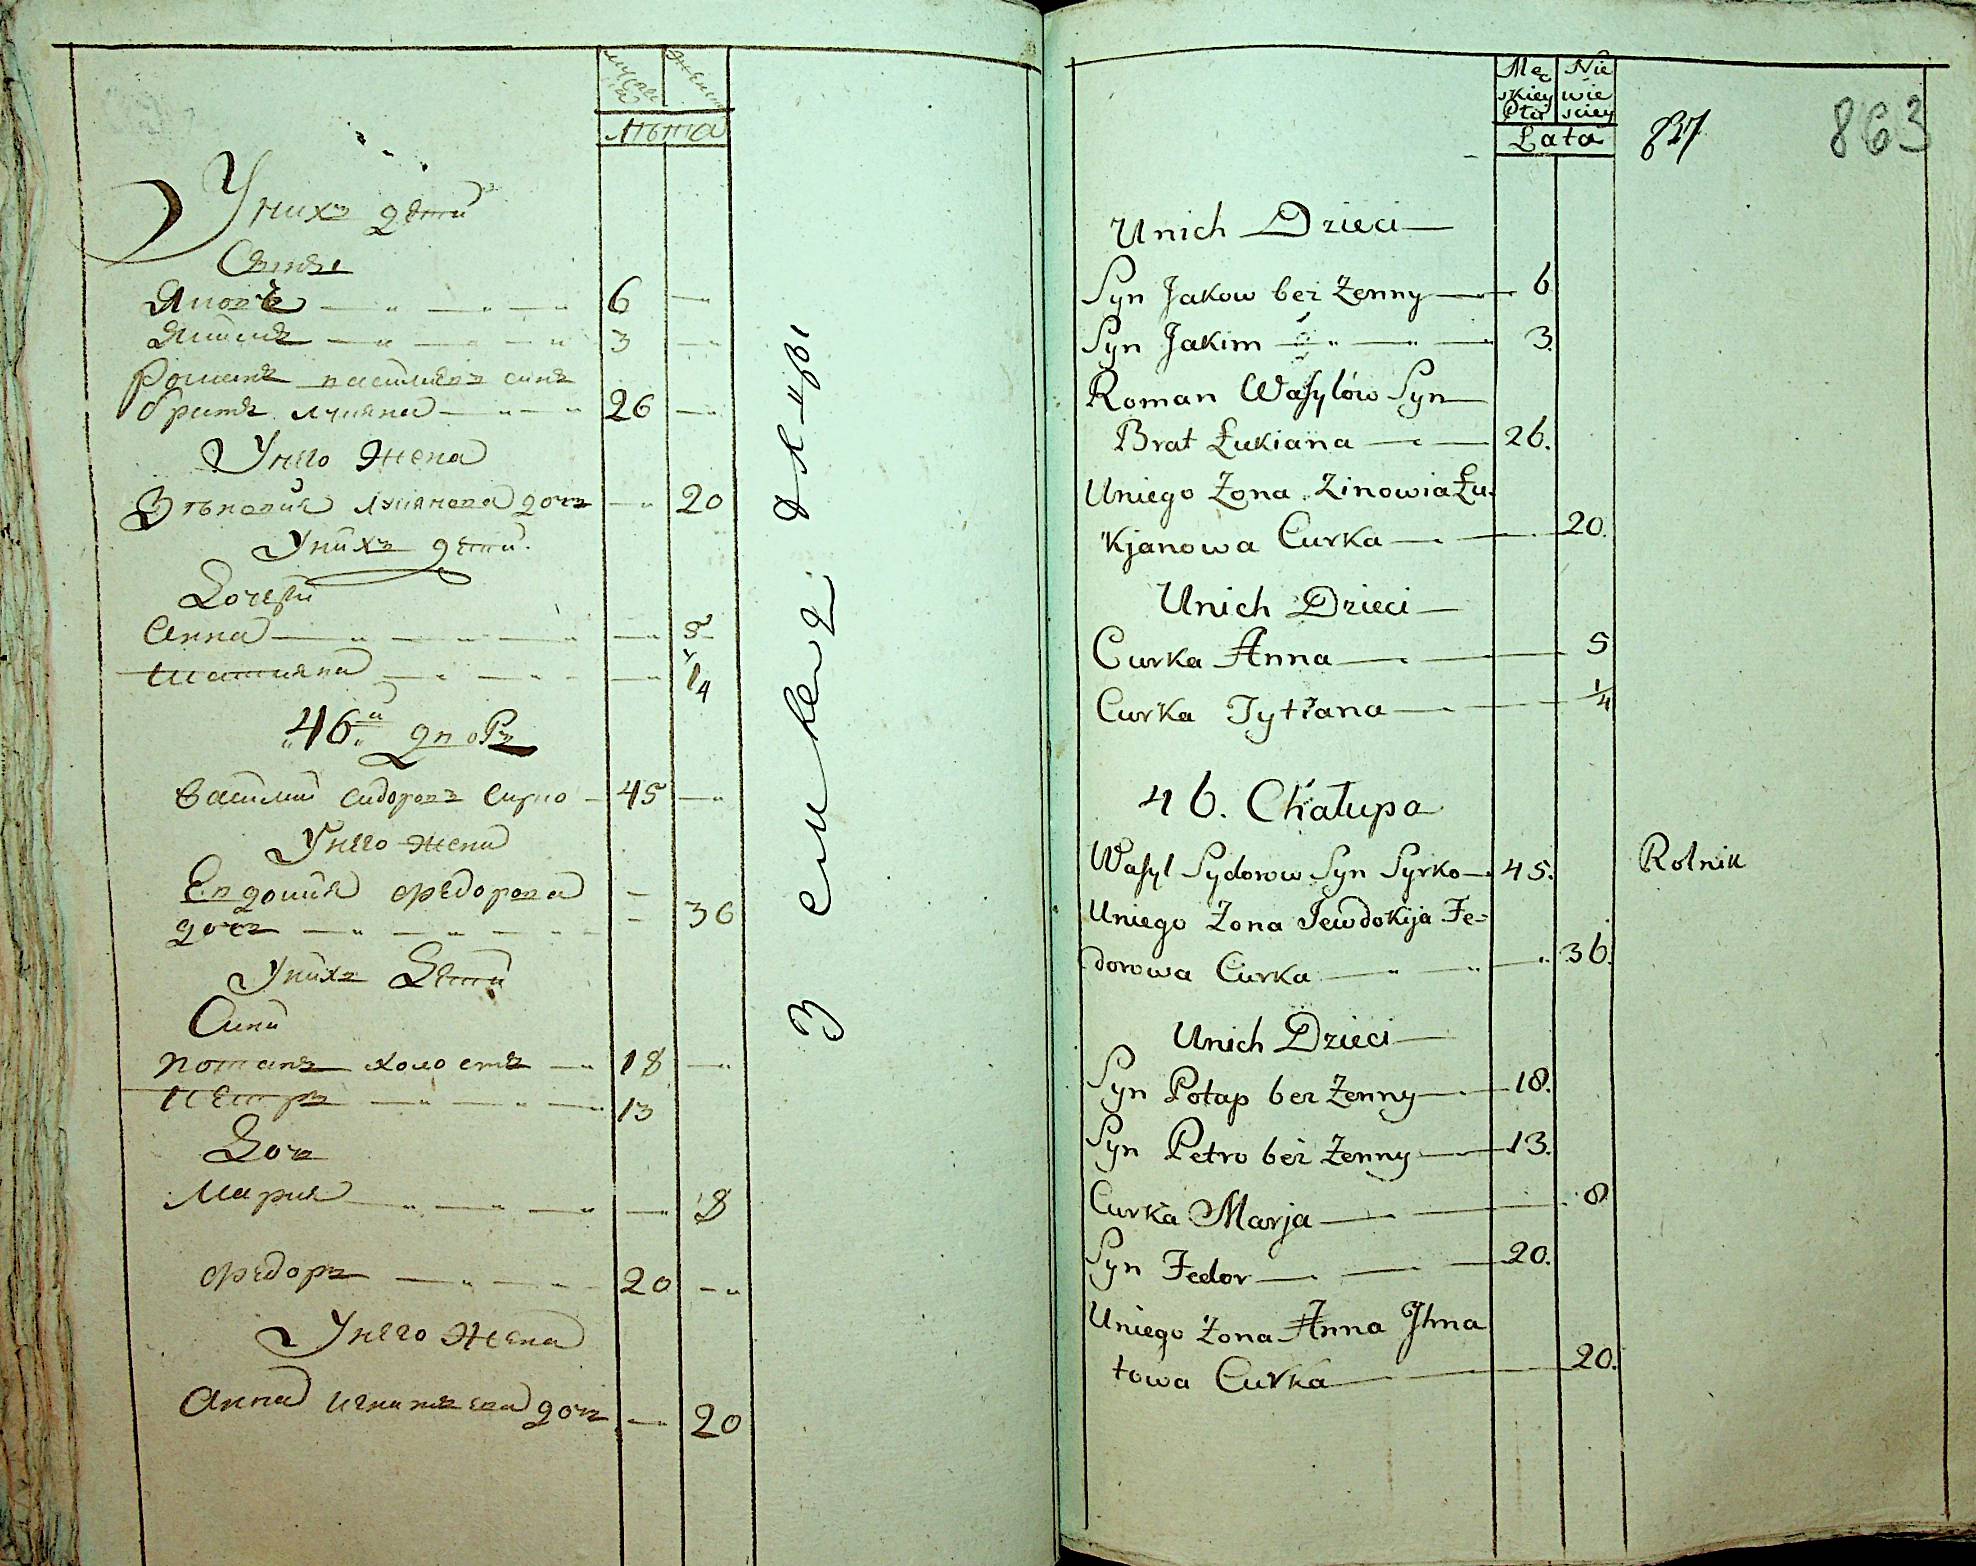 мужеска
женска
Лѣта
У нихъ дети
Сыны
Яковъ — " — " — " 6 — "
Якимъ — " — " — " 3 — "
Романъ васильевъ синъ
братъ лукяна — " — " 26 — "
У него жена
Зѣновия Лукянова дочь — " 20
У нихъ дети.
Дочери
Анна — " — " — " — " 5
Татияна — " — " — " — " 1/4
"46"й дворъ
Василий сидоровъ сирко — 45 — "
У него жена
Евдокия федорова
дочь — " — " — " 36
У нихъ Дети
Сини
Потапъ холостъ — " 18 — "
Петръ — " — " — " 13
Дочь
Мария — " — " — " — " 8
Федоръ — " — " 20 — "
У него жена
Анна игнатьева дочь — " 20
Mę Nie
skiey wie
Płci sciey
Łata
827
863
Unich Dzieci —
Syn Jakow bez Żenny — 6
Syn Jakim — " — " — 3.
Roman Wasylów Syn —
Brat Łukiana — " — 26.
Uniego Żona Zinowia Łu-
kjanowa Curka — " — 20.
Unich Dzieci —
Curka Anna — 5
Curka Tytiana — 1/4
46. Chałupa
Wasyl Sydorow Syn Syrko — 45. Rolnik
Uniego Żona Jewdokija Fe-
dorowa Curka — " — " — " 36.
Unich Dzieci —
Syn Potap bez Żenny — 18.
Syn Petro bez Żenny — 13.
Curka Marja — 8
Syn Fedor — 20.
Uniego Żona Anna Jhna
towa Curka — 20.